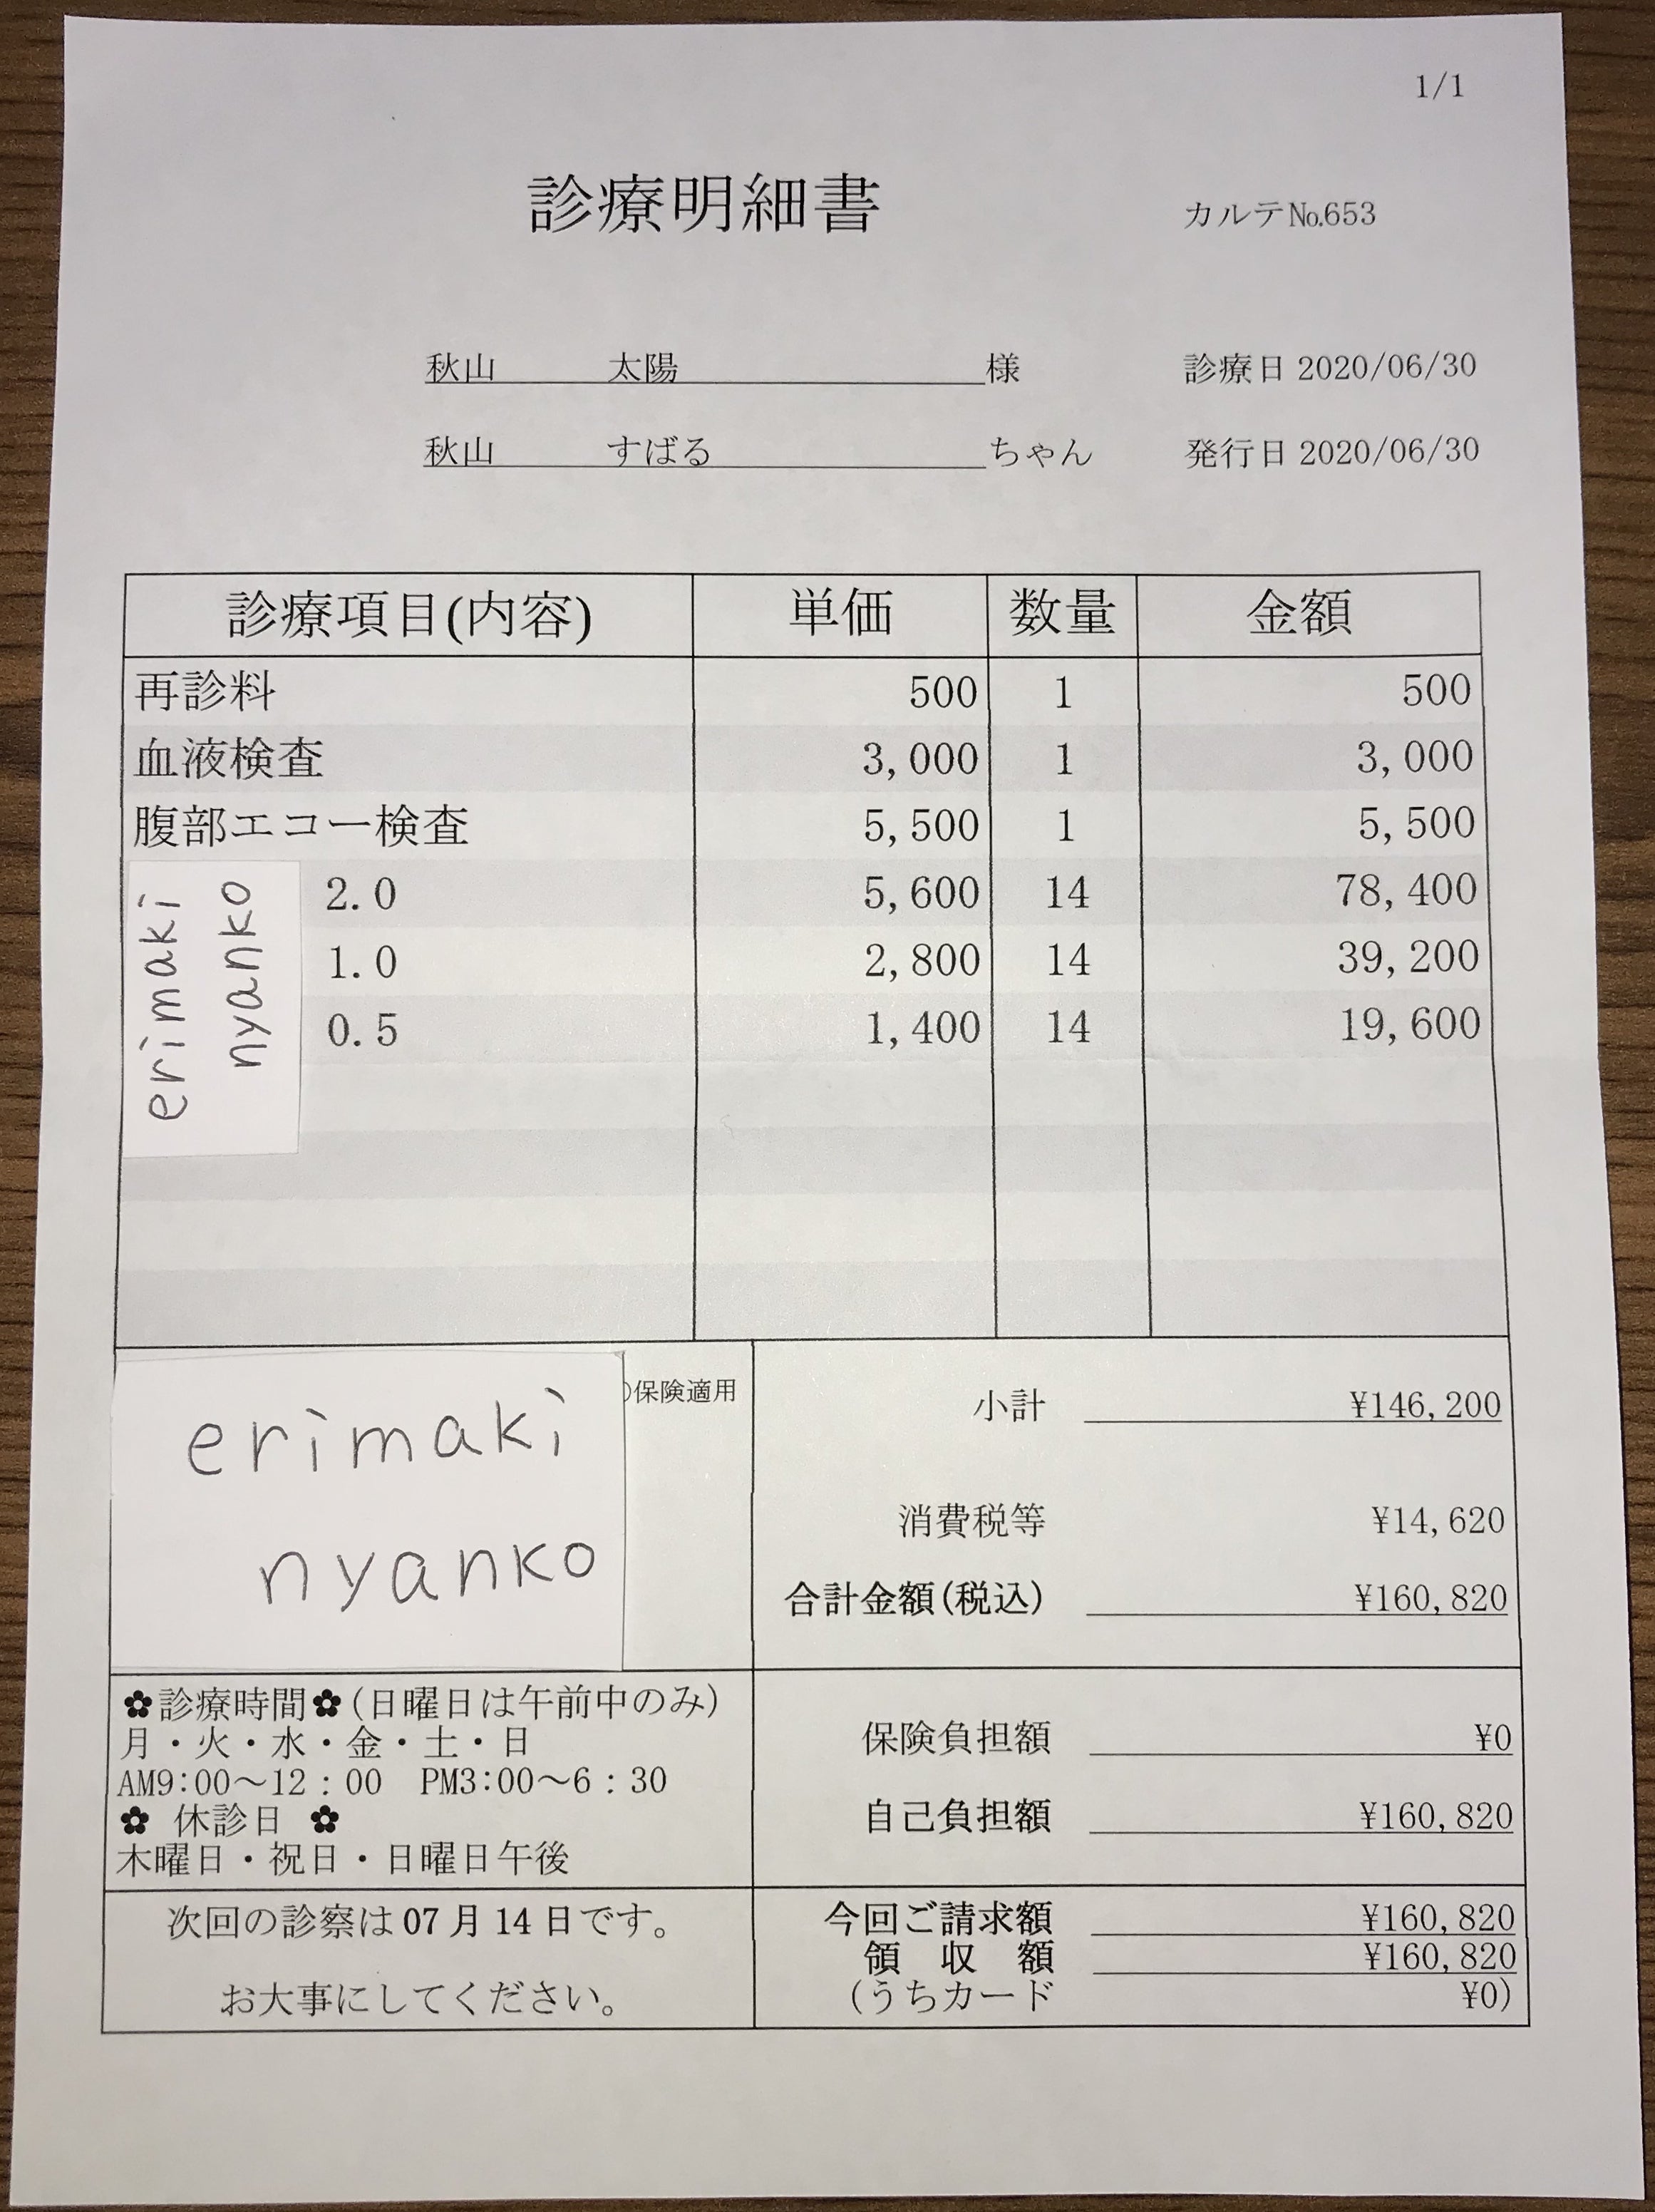 1/1
診療明細書
カルテ№653
秋山 太陽 様 診療日 2020/06/30
秋山 すばる ちゃん 発行日 2020/06/30
診療項目(内容) 単価 数量 金額
再診料 500 1 500
血液検査 3,000 1 3,000
腹部エコー検査 5,500 1 5,500
2.0 5,600 14 78,400
1.0 2,800 14 39,200
0.5 1,400 14 19,600
erimaki
nyanko
保険適用
erimaki
nyanko
小計 ¥146,200
消費税等 ¥14,620
合計金額(税込) ¥160,820
✿診療時間✿(日曜日は午前中のみ)
月・火・水・金・土・日
AM9:00～12：00 PM3:00～6：30
✿ 休診日 ✿
木曜日・祝日・日曜日午後
保険負担額 ¥0
自己負担額 ¥160,820
次回の診察は07月14日です。
お大事にしてください。
今回ご請求額 ¥160,820
領 収 額 ¥160,820
(うちカード ¥0)